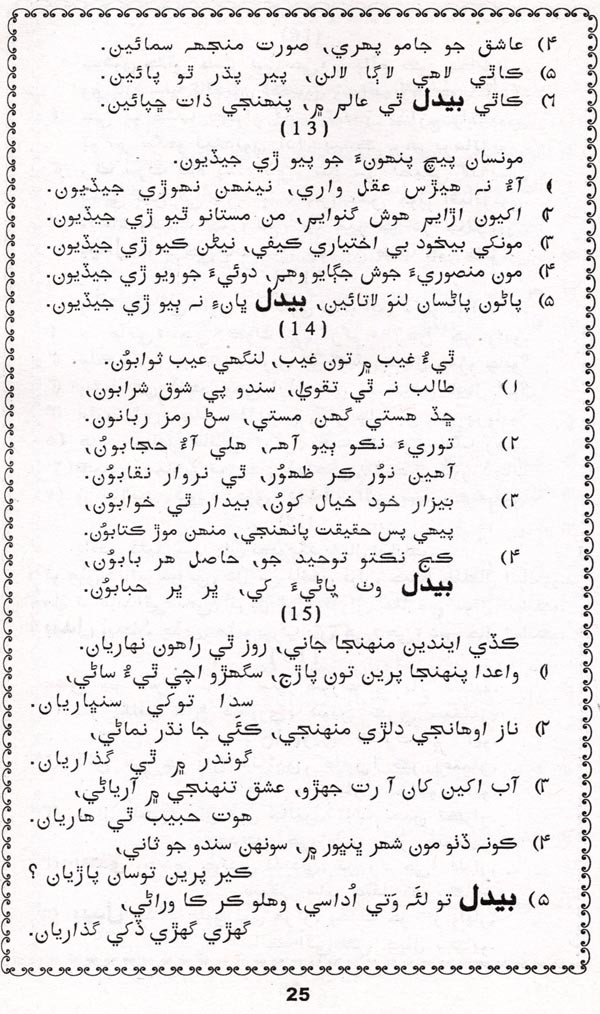 ۴) عاشق جو جامو پھري، صورت منجھہ سمائين.
۵) ڪاٿي لاهي لاڳا لالن، پير پڌر ٿو پائين.
۶) ڪاٿي بيدل ٿي عالم ۾، پنهنجي ذات ڇپائين.
(13)
مونسان پيچ پنهونءَ جو پيو ڙي جيڏيون.
۱ آءٌ نہ هيڙس عقل واري، نينهن نهوڙي جيڏيون.
۲) اکيون اڙايم هوش گنوايم، من مستانو ٿيو ڙي جيڏيون.
۳) مونکي بيخود بي اختياري ڪيفي، نيڻن ڪيو ڙي جيڏيون.
۴) مون منصوريءَ جوش جڳايو وهم، دوئيءَ جو ويو ڙي جيڏيون.
۵) پاڻون پاڻسان لنوَ لاتائين، بيدل ڀانءِ نہ ٻيو ڙي جيڏيون.
(14)
ٿيءُ غيب ۾ تون غيب، لنگهي عيب ثوابوُن.
۱) طالب نہ ٿي تقويٰ، سندو پي شوق شرابون،
ڇڏ هستي گهن مستي، سڻ رمز ربانون.
۲) توريءَ نڪو ٻيو آهہ، هلي آءُ حجابوُن،
آهين نوُر ڪر ظهوُر، ٿي نروار نقابوُن.
۳) بيزار خود خيال کوُن، بيدار ٿي خوابوُن،
پيهي پس حقيقت پانهنجي، منهن موڙ ڪتابوُن.
۴) ڪڇ نڪتو توحيد جو، حاصل هر بابوُن،
بيدل وٺ پاڻيءَ کي، ڀر ڀر حبابوُن.
(15)
ڪڏي ايندين منهنجا جاني، روز ٿي راهون نهاريان.
۱) واعدا پنهنجا پرين تون پاڙج، سگهڙو اچي ٿيءُ ساڻي،
سدا توکي سنڀاريان.
۲) ناز اوهانجي دلڙي منهنجي، ڪئَي جا نذر نماڻي،
گوندر ۾ ٿي گذاريان.
۳) آب اکين کان آ رت جهڙو، عشق تنهنجي ۾ آرياڻي،
هوت حبيب ٿي هاريان.
۴) ڪونہ ڏٺو مون شهر ڀنڀور ۾، سونهن سندو جو ثاني،
ڪير پرين توسان پاڙيان ؟
۵) بيدل تو لئَہ وَتي اُداسي، وهلو ڪر ڪا وراڻي،
گهڙي گهڙي ڏکي گذاريان.
25